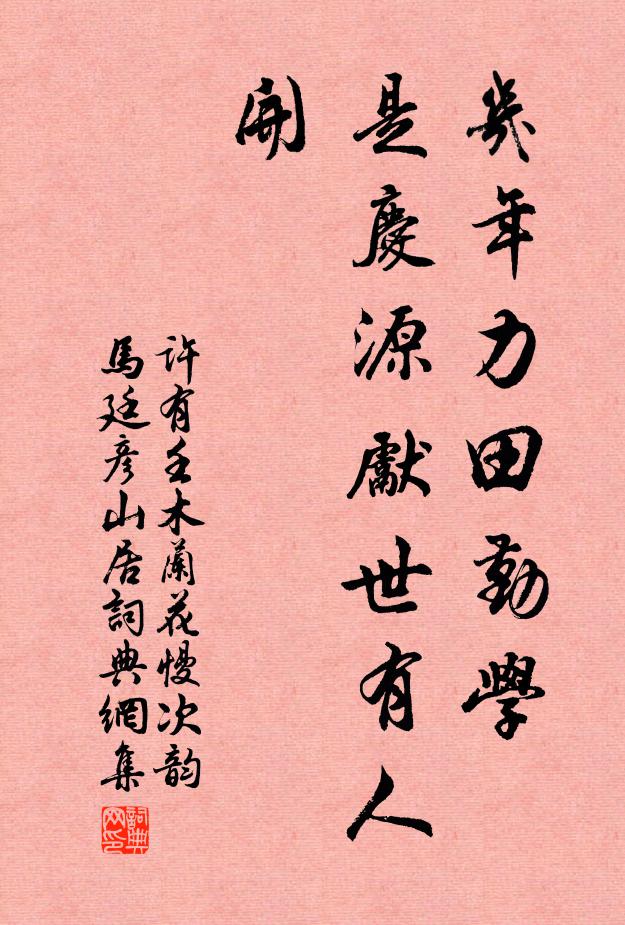 幾年力田勤學
是慶源獻世有人
開
許有壬木蘭花慢次韵
馬廷彥山居詞典網集
詞典网印